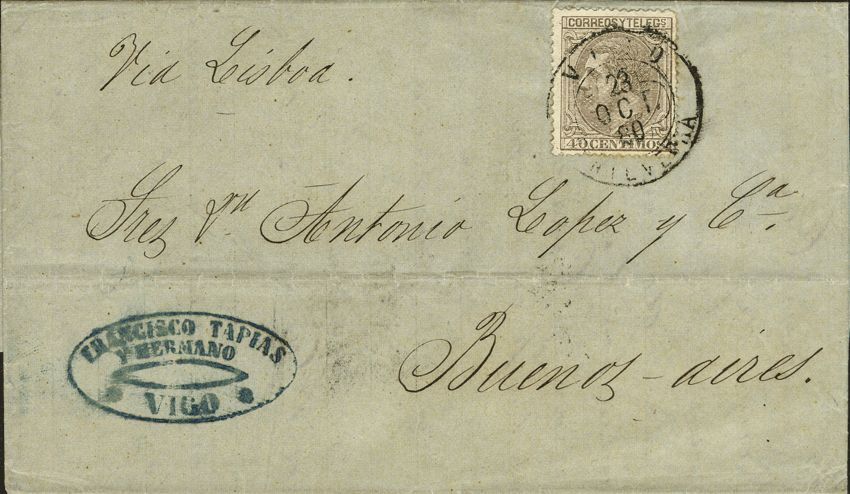 Via Lisboa.
CORREOS Y TELEGS
40 CENTIMOS
23
OCT
80
Sres Antonio Lopez y Cª
Buenos-aires.
FRANCISCO TAPIAS
Y HERMANO
VIGO